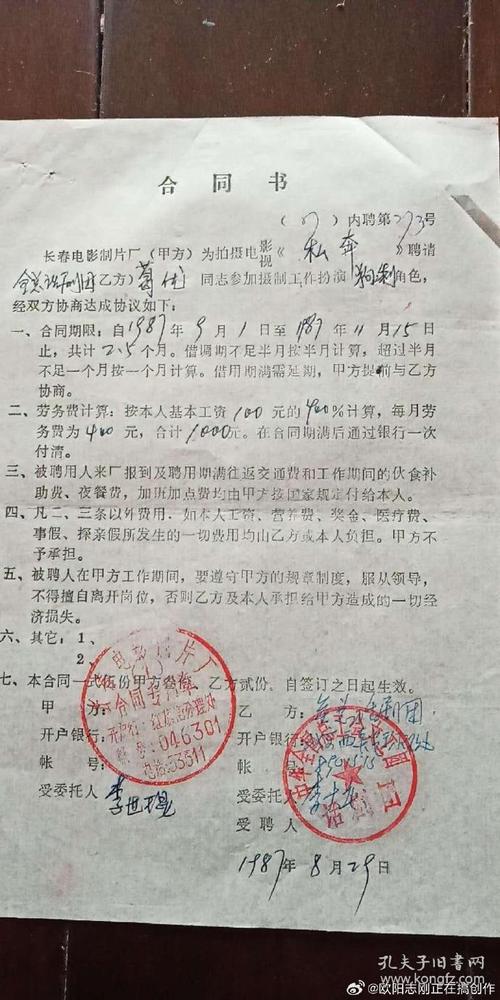 合同书
(87)内聘第273号
长春电影制片厂(甲方)为拍摄电影视《私奔》聘请
全总话剧团(乙方)葛优同志参加摄制工作扮演 角色,
经双方协商达成协议如下:
一、合同期限:自1987年9月1日至1987年11月15日
止,共计2.5个月。借调期不足半月按半月计算,超过半月
不足一个月按一个月计算。借用期满需延期,甲方提前与乙方
协商。
二、劳务费计算:按本人基本工资100元的400%计算,每月劳
务费为400元,合计1000元。在合同期满后通过银行一次
付清。
三、被聘用人来厂报到及聘用期满往返交通费和工作期间的伙食补
助费、夜餐费,加班加点费均由甲方按国家规定付给本人。
四、凡二、三条以外费用.如本人工资、营养费、奖金、医疗费、
事假、探亲假所发生的一切费用均由乙方或本人负担。甲方不
予承担。
五、被聘人在甲方工作期间,要遵守甲方的规章制度,服从领导,
不得擅自离开岗位,否则乙方及本人承担给甲方造成的一切经
济损失。
六、其它:1、
2、
七、本合同一式伍份甲方叁份,乙方贰份,自签订之日起生效。
甲方:
开户银行:
帐号:
受委托人
长春电影制片厂
合同专用章
开户行:红旗街分理处
帐号:046301
电话:53311
乙方:全总话剧团
开户银行:
帐号:
受委托人
受聘人
1987年8月29日
孔夫子旧书网
www.kongfz.com
@欧阳志刚正在搞创作